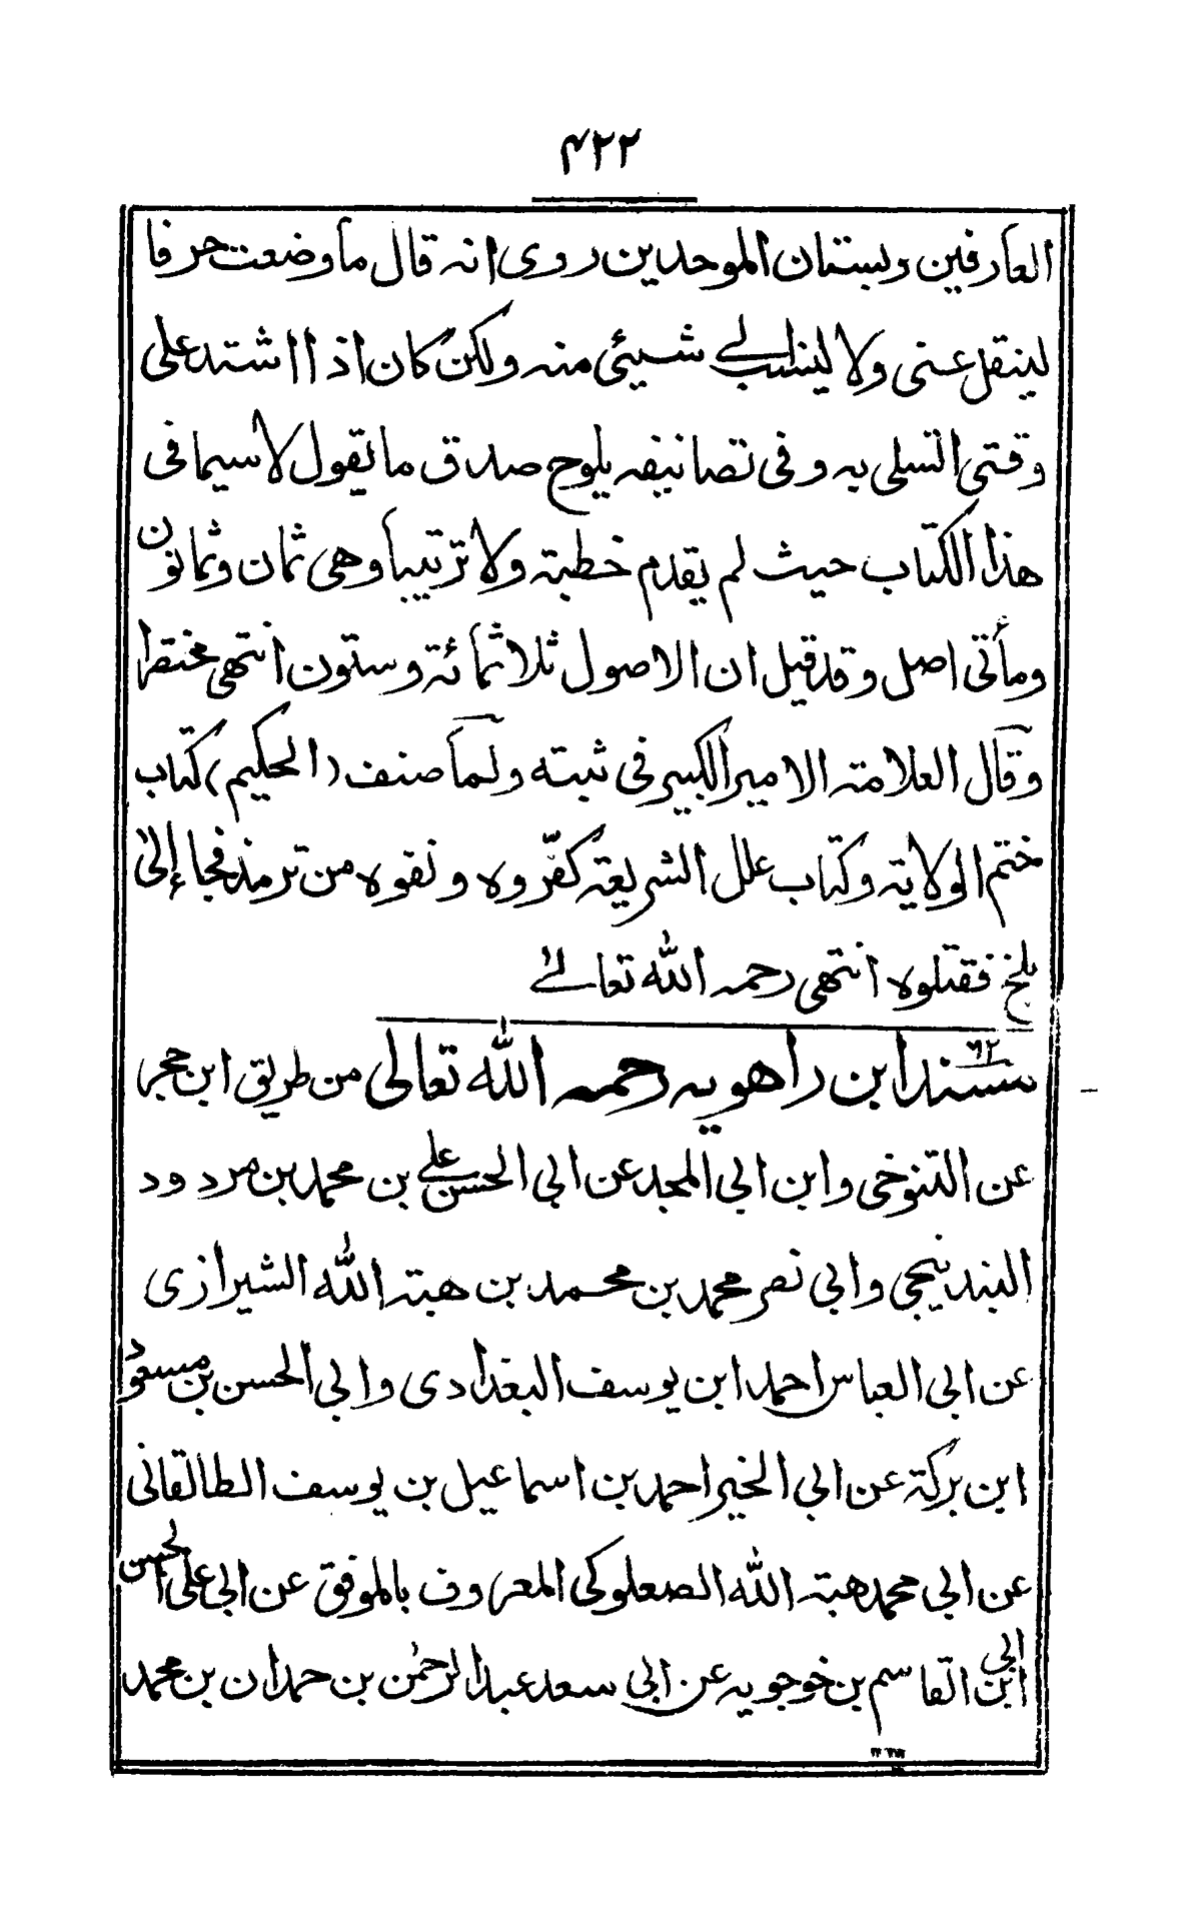 ۴۲۲
العارفين وبستان الموحدين روى انه قال ما وضعت حرفا
لينقل عنى ولا لينسب الي شيئ منه ولكن كان اذا اشتد على
وقتى اتسلى به وفى تصانيفه يلوح صدق ما يقول لاسيما فى
هذا الكتاب حيث لم يقدم خطبة ولا ترتيبا وهى ثمان وثمانون
ومأتى اصل وقد قيل ان الاصول ثلاثمائة وستون انتهى مختصرا
وقال العلامة الامير الكبير فى ثبته ولما صنف (الحكيم) كتاب
ختم الولاية وكتاب علل الشريعة كفّروه ونفوه من ترمذ فجاء إلى
بلخ فقتلوه انتهى رحمه الله تعالى
۶۲
سند ابن راهويه رحمه الله تعالى من طريق ابن حجر
عن التنوخى وابن ابي المجد عن ابي الحسن علي بن محمد بن مردود
البندنيجى وابي نصر محمد بن محمد بن هبة الله الشيرازى
عن ابي العباس احمد ابن يوسف البغدادى وابي الحسن بن مسعود
ابن بركة عن ابي الخير احمد بن اسماعيل بن يوسف الطالقانى
عن ابي محمد هبة الله الصعلوكى المعروف بالموفق عن ابي على الحسن
ابن ابي القاسم بن خوجويه عن ابي سعد عبد الرحمٰن بن حمدان بن محمد